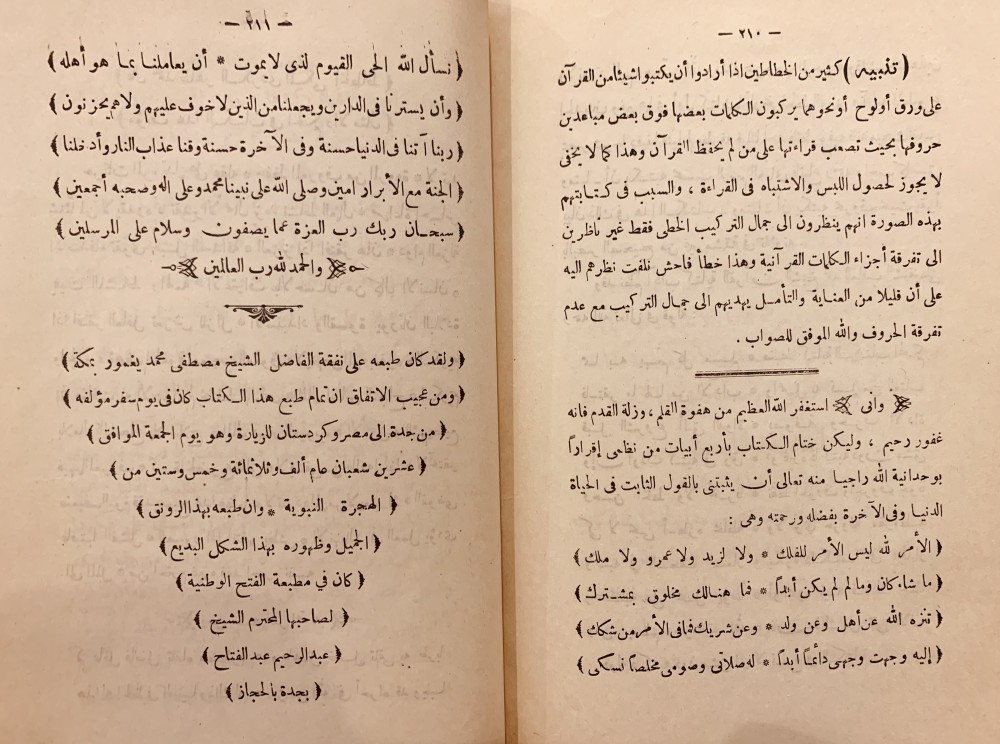 — ٢١٠ —
(تنبيه) كثير من الخطاطين اذا أرادوا أن يكتبوا شيئا من القرآن
على ورق أو لوح أو نحوهما يركبون الكلمات بعضها فوق بعض مباعدين
حروفها بحيث تصعب قراءتها على من لم يحفظ القرآن وهذا كما لا يخفى
لا يجوز لحصول اللبس والاشتباه فى القراءة ، والسبب فى كتابتهم
بهذه الصورة انهم ينظرون الى جمال التركيب الخطى فقط غير ناظرين
الى تفرقة أجزاء الكلمات القرآنية وهذا خطأ فاحش نلفت نظرهم اليه
على أن قليلا من العناية والتأمل يهديهم الى جمال التركيب مع عدم
تفرقة الحروف والله الموفق للصواب .
﴿ وانى ﴾ استغفر الله العظيم من هفوة القلم ، وزلة القدم فانه
غفور رحيم ، وليكن ختام الكتاب بأربع أبيات من نظمى إقرارًا
بوحدانية الله راجيا منه تعالى أن يثبتنى بالقول الثابت فى الحياة
الدنيا وفى الآخرة بفضله ورحمته وهى :
﴿ الأمر لله ليس الأمر للفلك * ولا لزيد ولا عمرو ولا ملك ﴾
﴿ ما شاء كان وما لم لم يكن أبدًا * فما هنالك مخلوق بمشترك ﴾
﴿ تنزه الله عن أهل وعن ولد * وعن شريك فما فى الأمر من شكك ﴾
﴿ إليه وجهت وجهى دائمًا أبدًا * له صلاتى وصومى مخلصًا نسكى ﴾
— ٢١١ —
﴿ نسأل الله الحى القيوم لذى لا يموت * أن يعاملنا بما هو أهله ﴾
﴿ وأن يسترنا فى الدارين ويجعلنا من الذين لا خوف عليهم ولا هم يحزنون ﴾
﴿ ربنا آتنا فى الدنيا حسنة وفى الآخرة حسنة وقنا عذاب النار وأدخلنا ﴾
﴿ الجنة مع الأبرار امين وصلى الله على نبينا محمد وعلى اله وصحبه أجمعين ﴾
﴿ سبحان ربك رب العزة عما يصفون وسلام على المرسلين ﴾
﴿ والحمد لله رب العالمين ﴾
﴿ ولقد كان طبعه على نفقة الفاضل الشيخ مصطفى محمد يغمور بمكة ﴾
﴿ ومن عجيب الاتفاق ان تمام طبع هذا الكتاب كان فى يوم سفر مؤلفه ﴾
﴿ من جدة الى مصر وكردستان للزيارة وهو يوم الجمعة الموافق ﴾
﴿ عشرين شعبان عام ألف وثلاثمائة وخمس وستين من ﴾
﴿ الهجرة النبوية * وان طبعه بهذا الرونق ﴾
﴿ الجميل وظهوره بهذا الشكل البديع ﴾
﴿ كان في مطبعة الفتح الوطنية ﴾
﴿ لصاحبها المحترم الشيخ ﴾
﴿ عبد الرحيم عبد الفتاح ﴾
﴿ بجدة بالحجاز ﴾